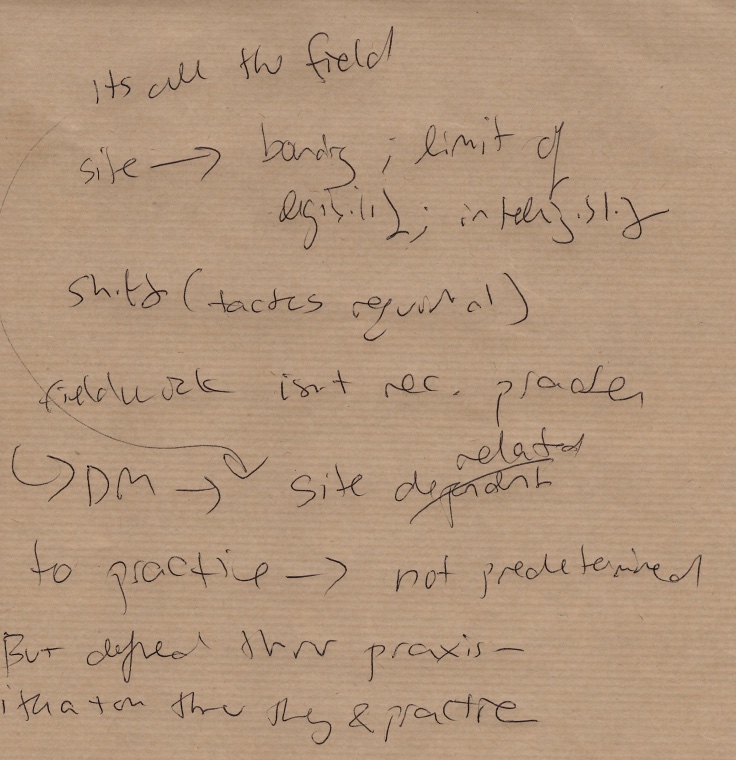 its all the field
site → bounds ; limit of
legibility ; intelligibility
shifts (tactics required)
fieldwork isnt nec. practice
DM → site dependent related
to practice → not predetermined
But defined thru praxis –
thru & practice